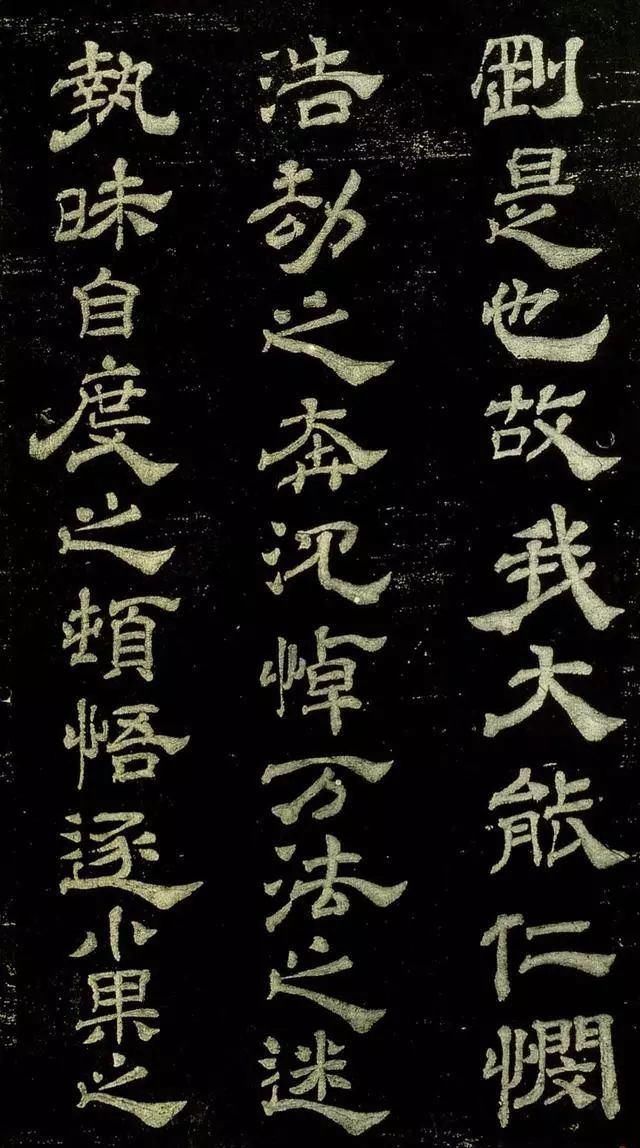 剛是也故我大能仁憫
浩劫之奔沉悼万法之迷
執昧自度之頓悟逐小果之